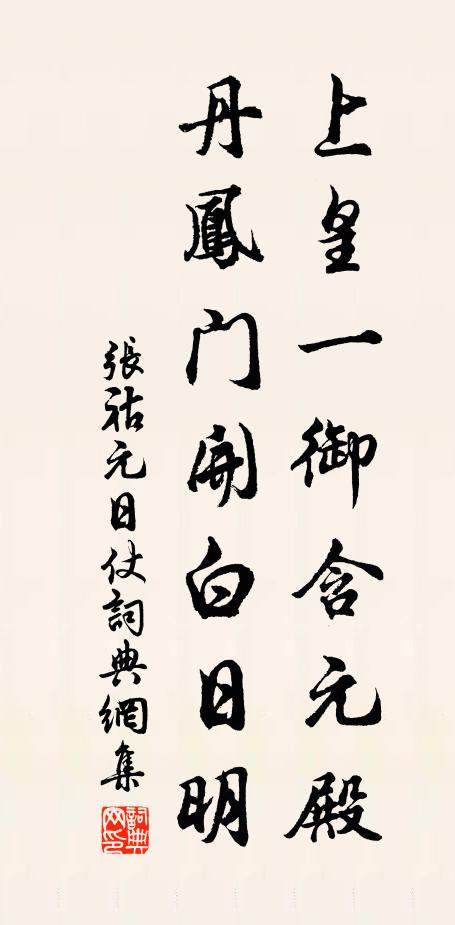 上皇一御含元殿
丹鳳门開白日明
張祜元日仗詞典網集
詞典网印